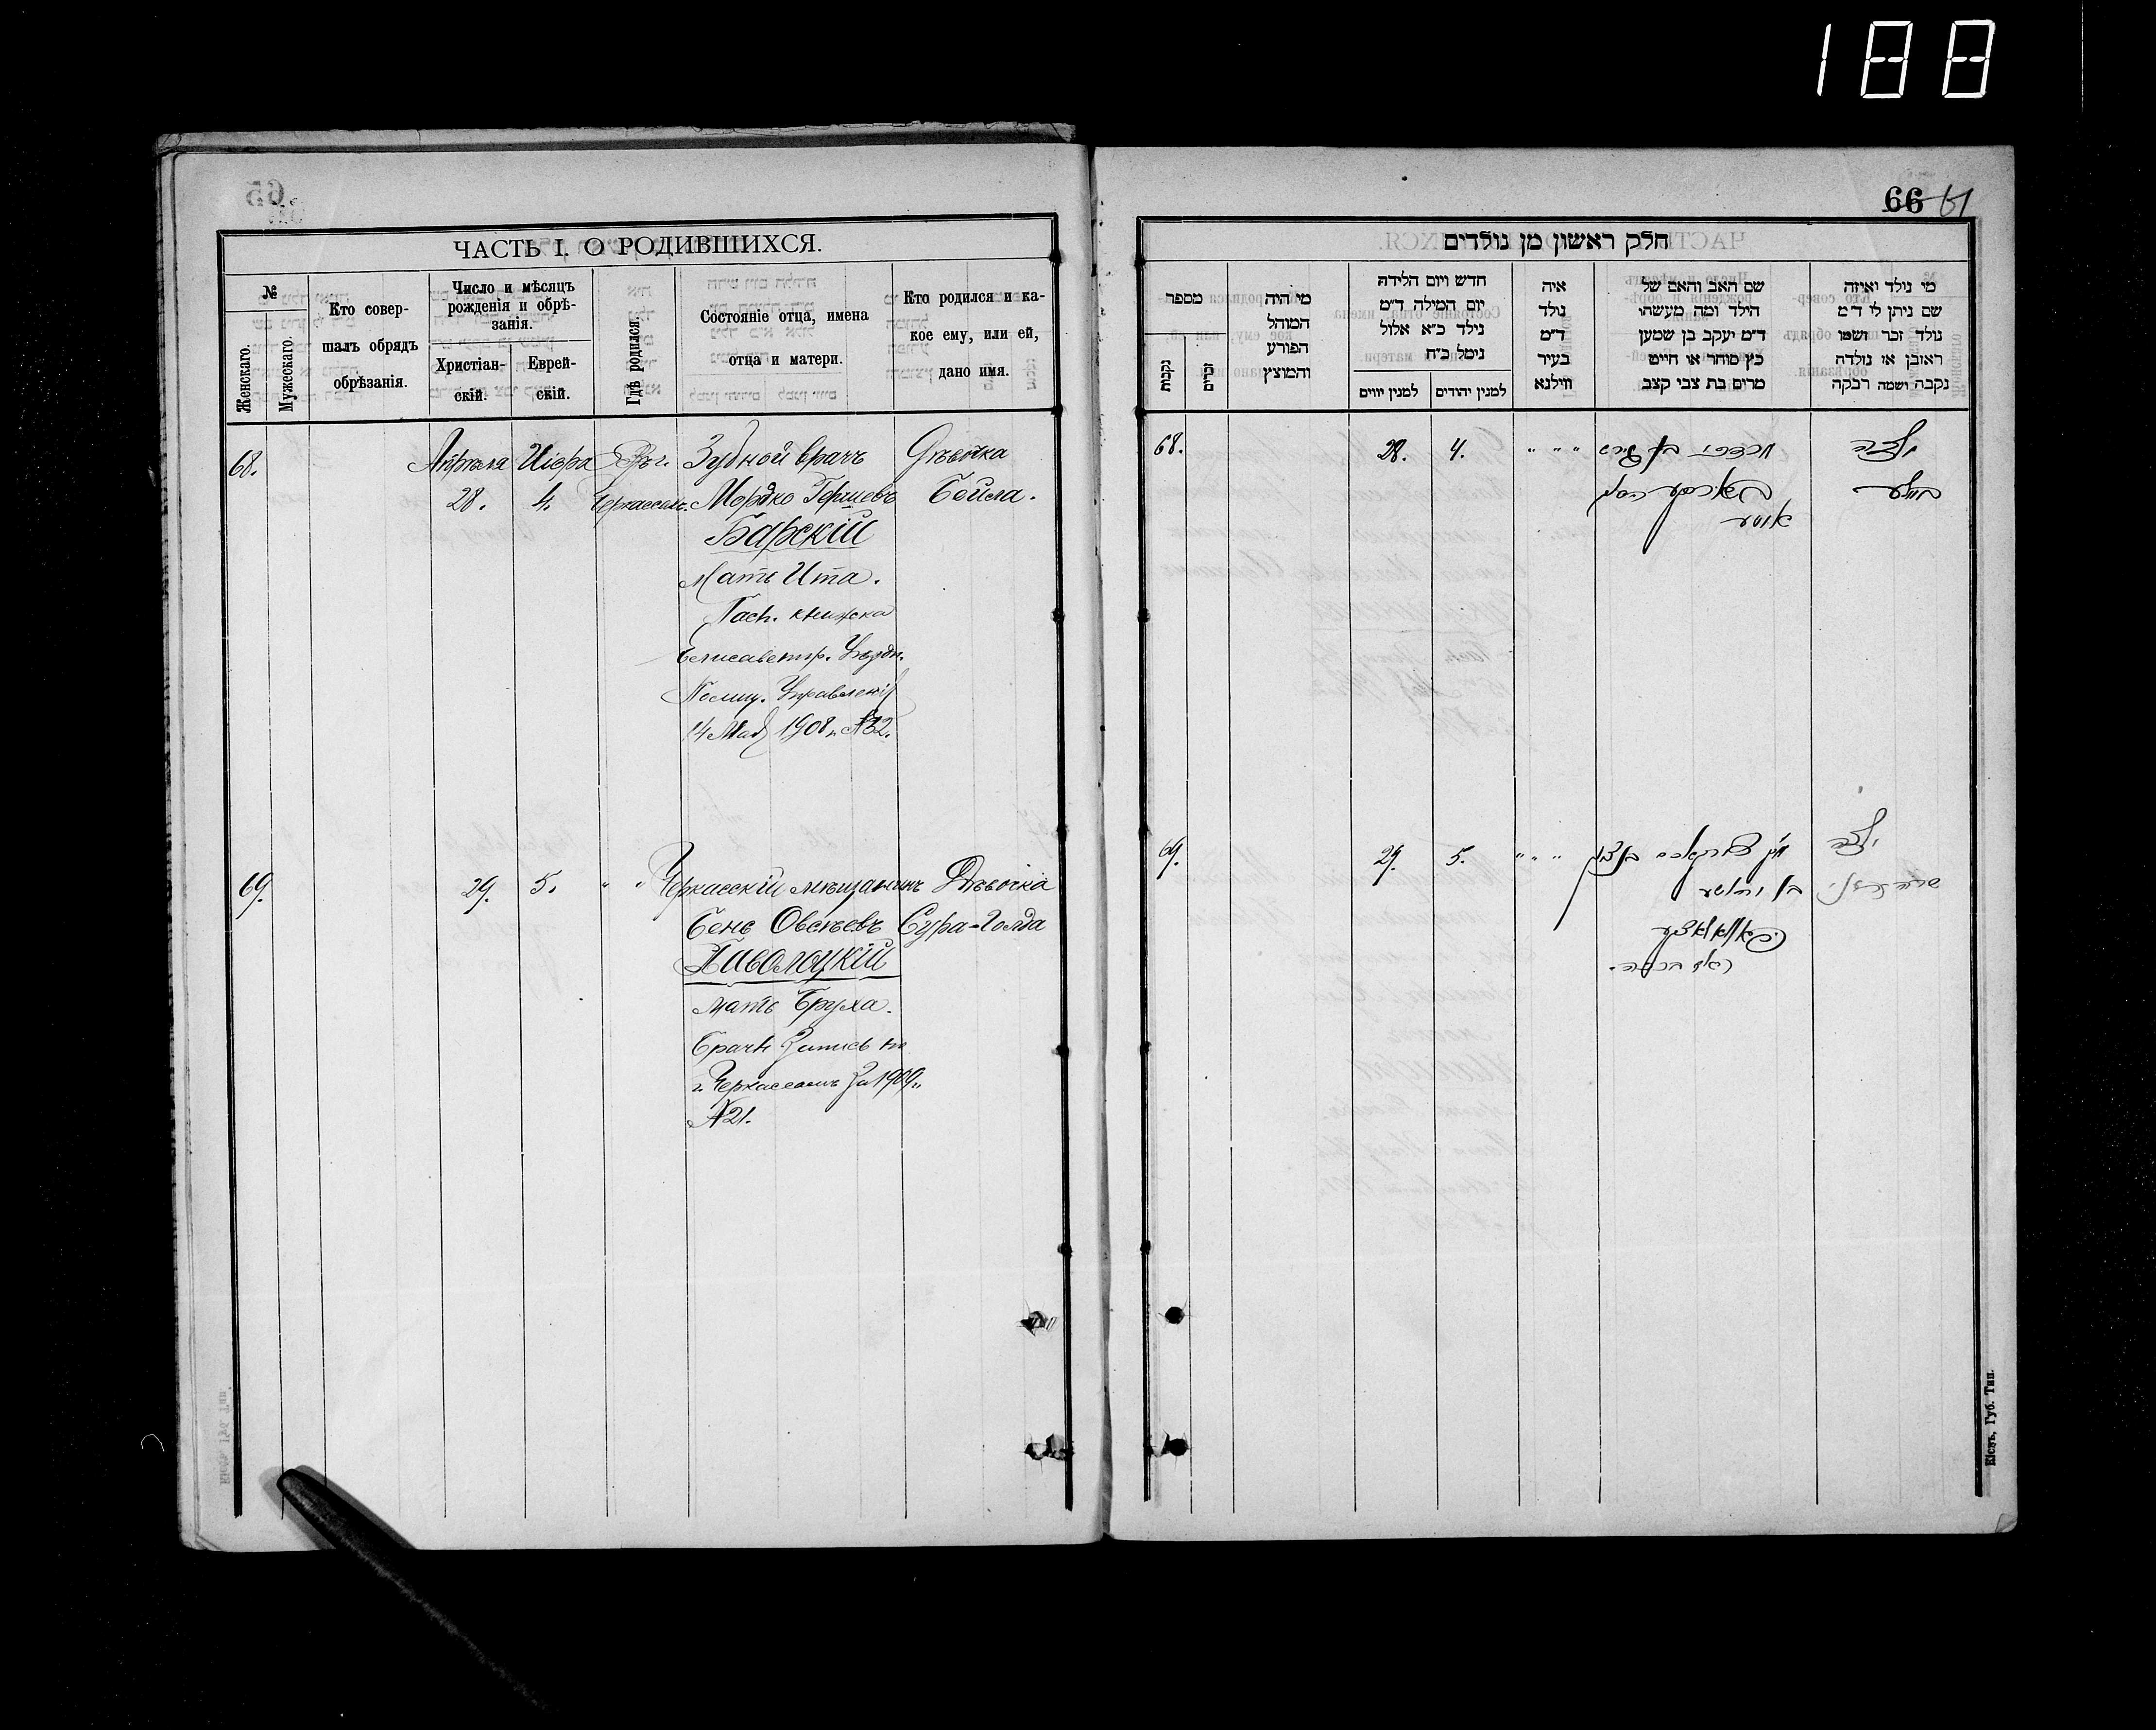 188
ЧАСТЬ I. О РОДИВШИХСЯ.
№
Женскаго.
Мужескаго.
Кто совер-
шалъ обрядъ
обрѣзанія.
Число и мѣсяцъ
рожденія и обрѣ-
занія.
Христіан-
скій.
Еврей-
скій.
Гдѣ родился.
Состояніе отца, имена
отца и матери.
Кто родился и ка-
кое ему, или ей,
дано имя.
68.
Апрѣля
28.
Иіора
4.
Въ г.
Черкассахъ.
Зубной врачъ
Мордко Гершевъ
Барскій
Мать Ита.
Пасп. книжка
Елисаветгр. Уѣздн.
Полиц. Управленія
14 Мая 1908 г. №32.
Дѣвочка
Бейла.
69.
29.
5.
" "
Черкасскій мѣщанинъ
Бенс Овсѣевъ
мать Бруха.
Брачн запись по
г. Черкассамъ за 1909 г.
№21.
Дѣвочка
Сура-Голда
66 61
חלק ראשון מן נולדים
מספר
נקבות
זכרים
מי היה
המוהל
הפורע
והמוצץ
חדש ויום הלידה
יום המילה ד״מ
נילד כ״א אלול
נימל כ״ח
למנין יווים
למנין יהודים
איה
נולד
ד״מ
בעיר
ווילנא
שם האב והאם של
הילד ומה מעשהו
ד״מ יעקב בן שמען
כץ סוחר או חייט
מרים בת צבי קצב
מי נולד ואיזה
שם ניתן לי ד״מ
נולד זכר ושמו
ראובן או נולדה
נקבה ושמה רבקה
68.
28.
4.
" " "
מרדכי בן הירש
ילדה
ביילע
69.
29.
5.
" " "
ילדה
Кіевъ, Губ. Тип.